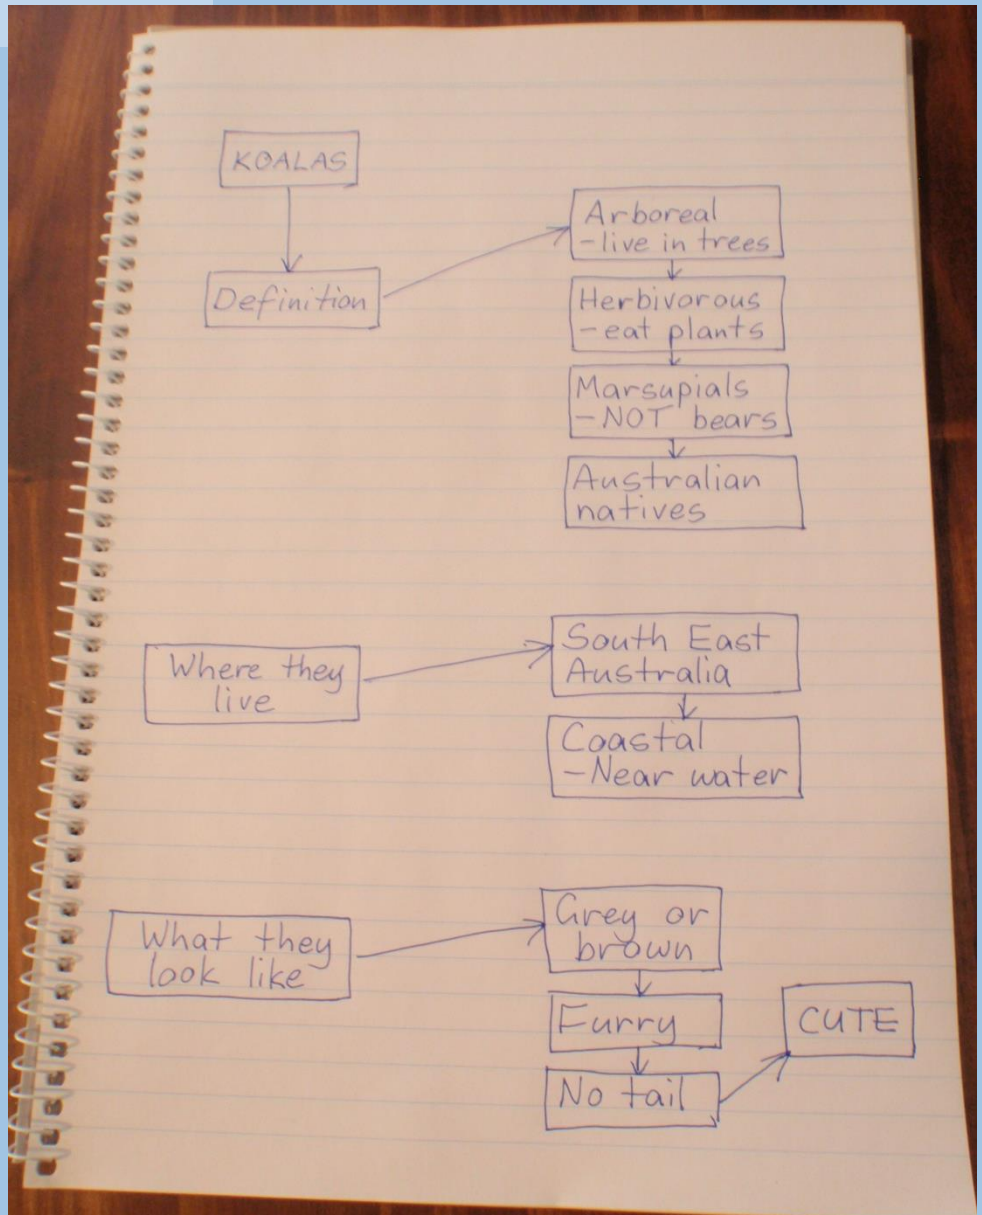 KOALAS
Definition
Arboreal
-live in trees
Herbivorous
-eat plants
Marsupials
-NOT bears
Australian
natives
Where they
live
South East
Australia
Coastal
-Near water
What they
look like
Grey or
brown
Furry
No tail
CUTE